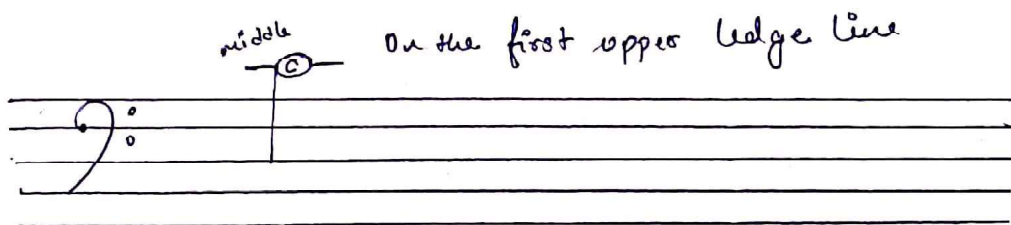 middle
C
On the first upper ledge line